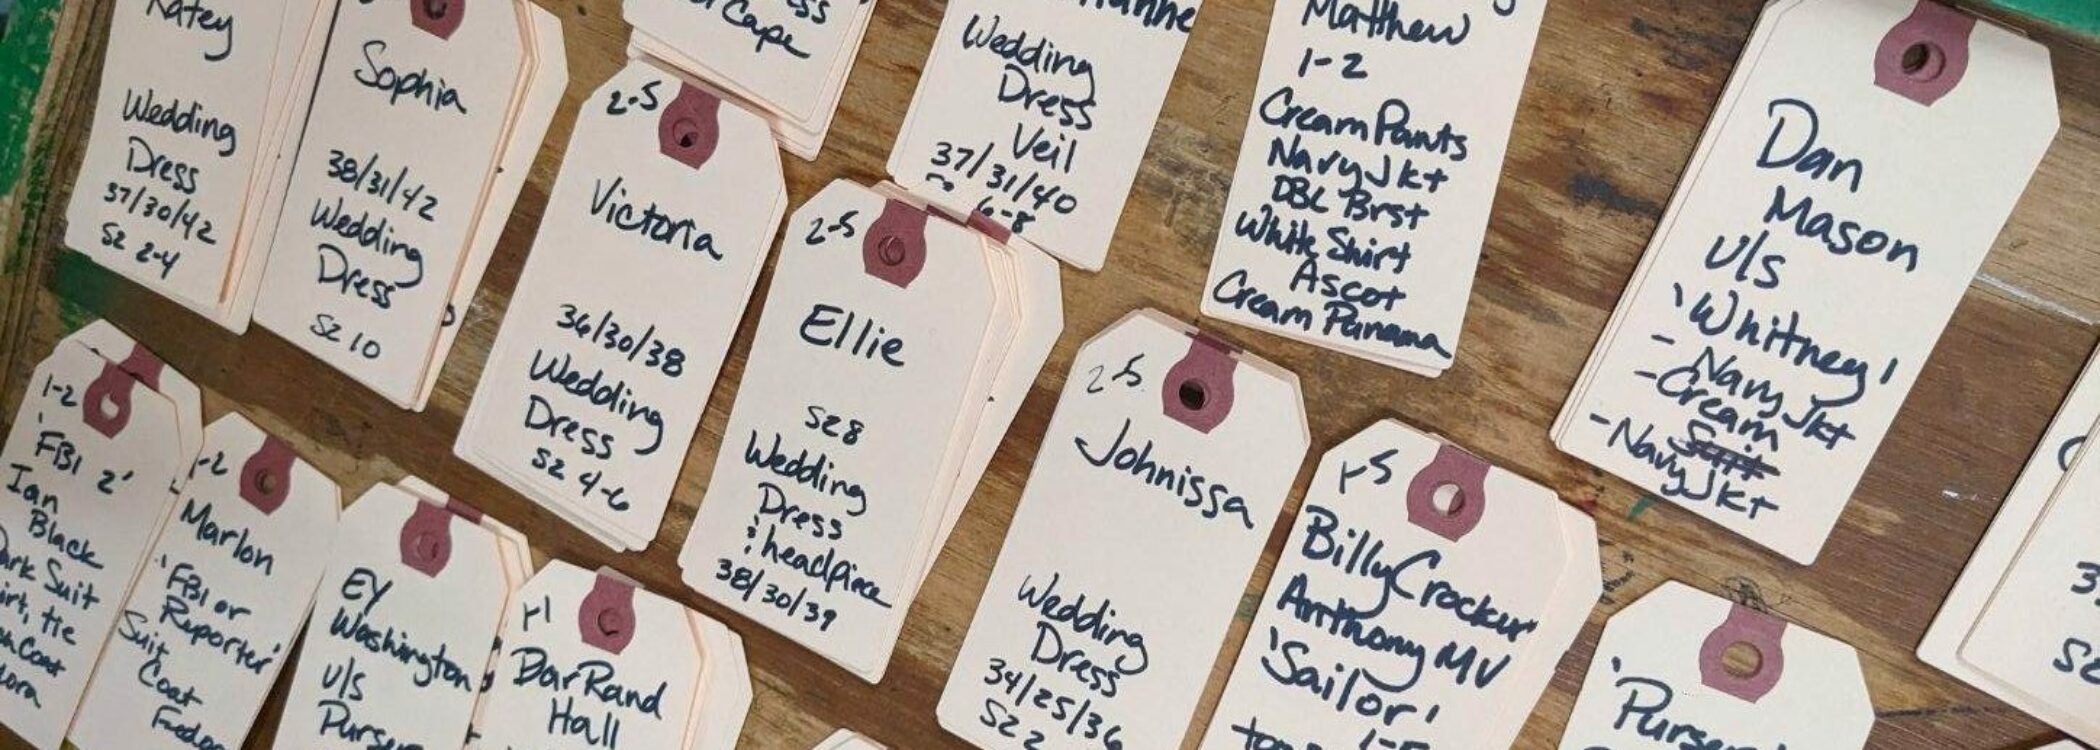 Katey
Wedding
Dress
37/30/42
SZ 2-4
Sophia
38/31/42
Wedding
Dress
SZ 10
Cape
2-5
Victoria
36/30/38
Wedding
Dress
SZ 4-6
Wedding
Dress
Veil
37/31/40
6-8
2-5
Ellie
SZ 8
Wedding
Dress
: headpiece
38/30/39
Matthew
1-2
Cream Pants
Navy Jkt
DBL Brst
White Shirt
Ascot
Cream Panama
Dan
Mason
U/S
'Whitney'
- Navy Jkt
- Cream
Suit
- Navy Jkt
1-2
'FBI 2'
Ian
Black
Dark Suit
tie
Coat
-2
Marlon
'FBI or
Reporter'
Suit
Coat
Fedora
EY
Washington
U/S
Purser
DarRand
Hall
2-5
Johnissa
Wedding
Dress
34/25/36
SZ 2
1-5
Billy Crocker
Anthony MV
'Sailor'
'Purser'